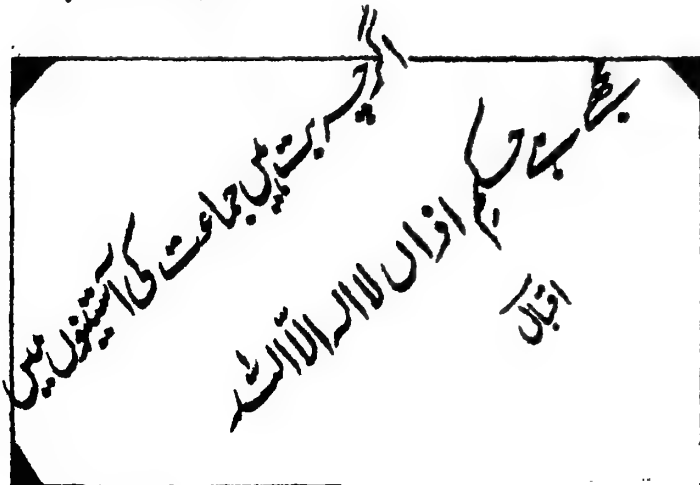 اگرچہ بت ہیں جماعت کی آستینوں میں
مجھے ہے حکم اذاں لا الہ الا اللہ
اقبال